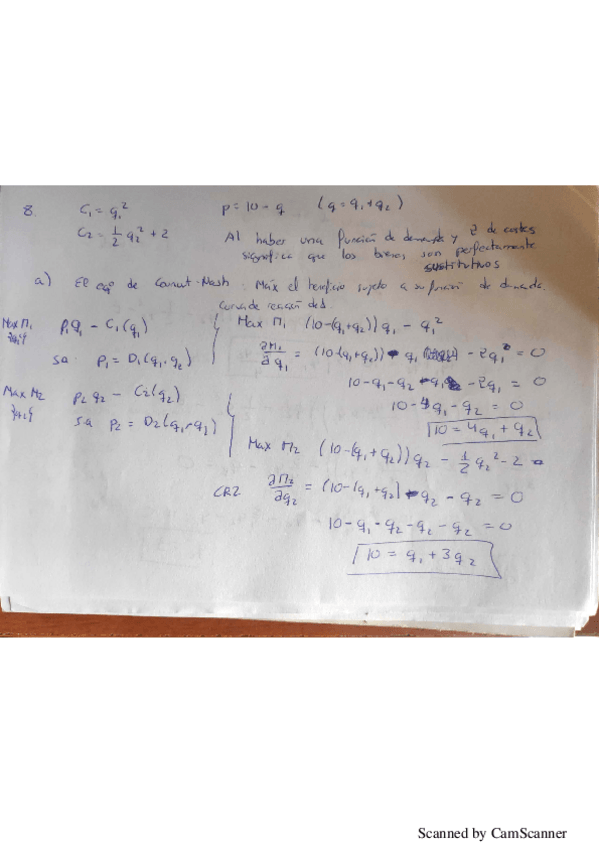 8. C₁ = q₁² p = 10 - q (q = q₁ + q₂)
C₂ = 1/2 q₂² + 2 Al haber una función de demanda y 2 de costes
significa que los bienes son perfectamente
sustitutivos
a) El eq° de Cournot-Nash: Máx el beneficio sujeto a su función de demanda.
Curva de reacción de 1.
Max Π₁ {q₁} p₁q₁ - C₁(q₁)
sa. p₁ = D₁(q₁, q₂)
Max Π₁ (10-(q₁+q₂))q₁ - q₁²
∂Π₁/∂q₁ = (10-(q₁+q₂)) - q₁ - 2q₁² = 0
10 - q₁ - q₂ - q₁ - 2q₁ = 0
10 - 4q₁ - q₂ = 0
10 = 4q₁ + q₂
Max Π₂ {q₂} p₂q₂ - C₂(q₂)
sa p₂ = D₂(q₁, q₂)
Max Π₂ (10-(q₁+q₂))q₂ - 1/2 q₂² - 2
CR2 ∂Π₂/∂q₂ = (10-(q₁+q₂) - q₂ - q₂ = 0
10 - q₁ - q₂ - q₂ - q₂ = 0
10 = q₁ + 3q₂
Scanned by CamScanner